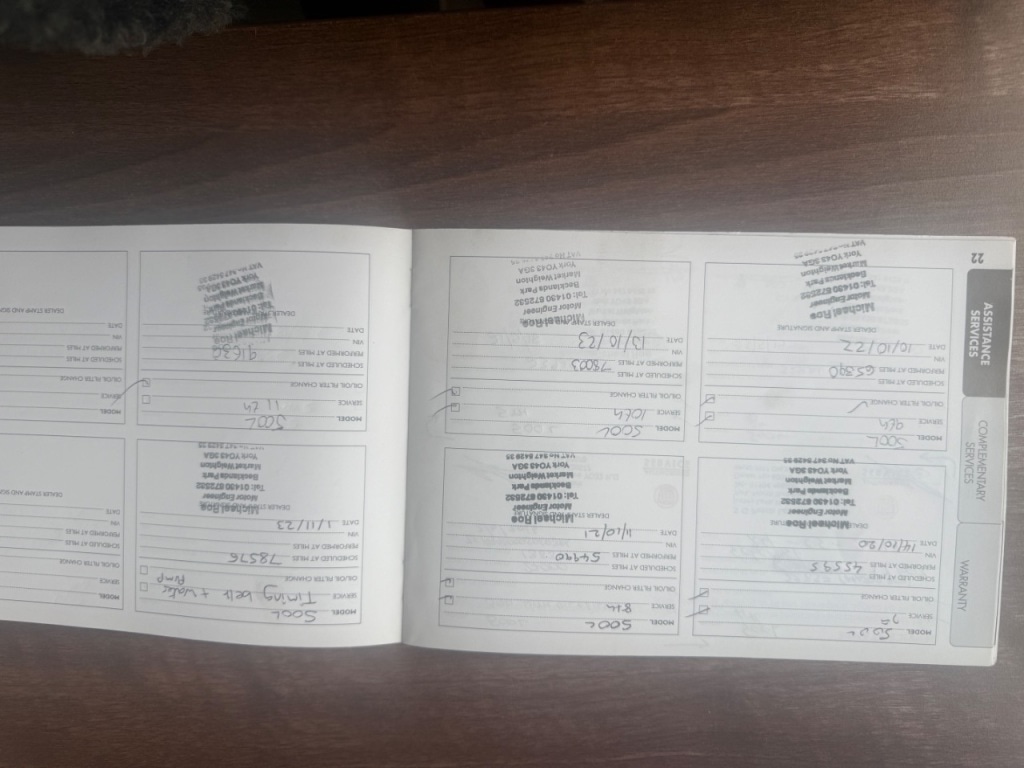 WARRANTY
COMPLEMENTARY
SERVICES
ASSISTANCE
SERVICES
22
MODEL 500L
SERVICE
OIL/OIL FILTER CHANGE
SCHEDULED AT MILES
PERFORMED AT MILES 45595
VIN
DATE 14/10/20
Michael Roe
Motor Engineer
Tel: 01430 872532
Becklands Park
Market Weighton
York YO43 3GA
VAT No 947 8429 35
MODEL 500L
SERVICE 8th
OIL/OIL FILTER CHANGE
SCHEDULED AT MILES
PERFORMED AT MILES 54990
VIN
DATE 1/10/21
DEALER STAMP AND SIGNATURE
Michael Roe
Motor Engineer
Tel: 01430 872532
Becklands Park
Market Weighton
York YO43 3GA
VAT No 947 8429 35
MODEL 500L
SERVICE 9th
OIL/OIL FILTER CHANGE
SCHEDULED AT MILES
PERFORMED AT MILES 65890
VIN
DATE 10/10/22
DEALER STAMP AND SIGNATURE
Michael Roe
Motor Engineer
Tel: 01430 872532
Becklands Park
Market Weighton
York YO43 3GA
MODEL 500L
SERVICE 10th
OIL/OIL FILTER CHANGE
SCHEDULED AT MILES
PERFORMED AT MILES 78003
VIN
DATE 13/10/23
DEALER STAMP
Michael Roe
Motor Engineer
Tel: 01430 872532
Becklands Park
Market Weighton
York YO43 3GA
MODEL 500L
SERVICE Timing belt + water
Pump
OIL/OIL FILTER CHANGE
SCHEDULED AT MILES 78576
PERFORMED AT MILES
VIN
DATE 1/11/23
DEALER STAMP
Michael Roe
Motor Engineer
Tel: 01430 872532
Becklands Park
Market Weighton
York YO43 3GA
VAT No 947 8429 35
MODEL
SERVICE
OIL/OIL FILTER CHANGE
SCHEDULED AT MILES
PERFORMED AT MILES
VIN
DATE
DEALER STAMP AND
MODEL 500L
SERVICE 11th
OIL/OIL FILTER CHANGE
SCHEDULED AT MILES
PERFORMED AT MILES 91630
VIN
DATE
Michael Roe
Motor Engineer
MODEL
SERVICE
OIL/OIL FILTER CHANGE
SCHEDULED AT MILES
PERFORMED AT MILES
VIN
DATE
DEALER STAMP AND